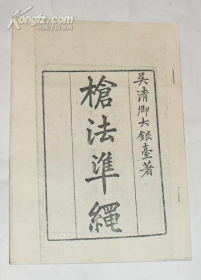 吳清卿大銀臺著
槍法準繩